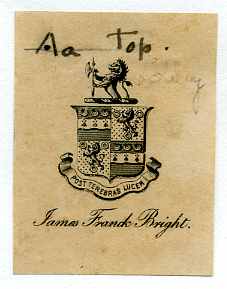 Aa Top.
POST TENEBRAS LUCEM
James Franck Bright.